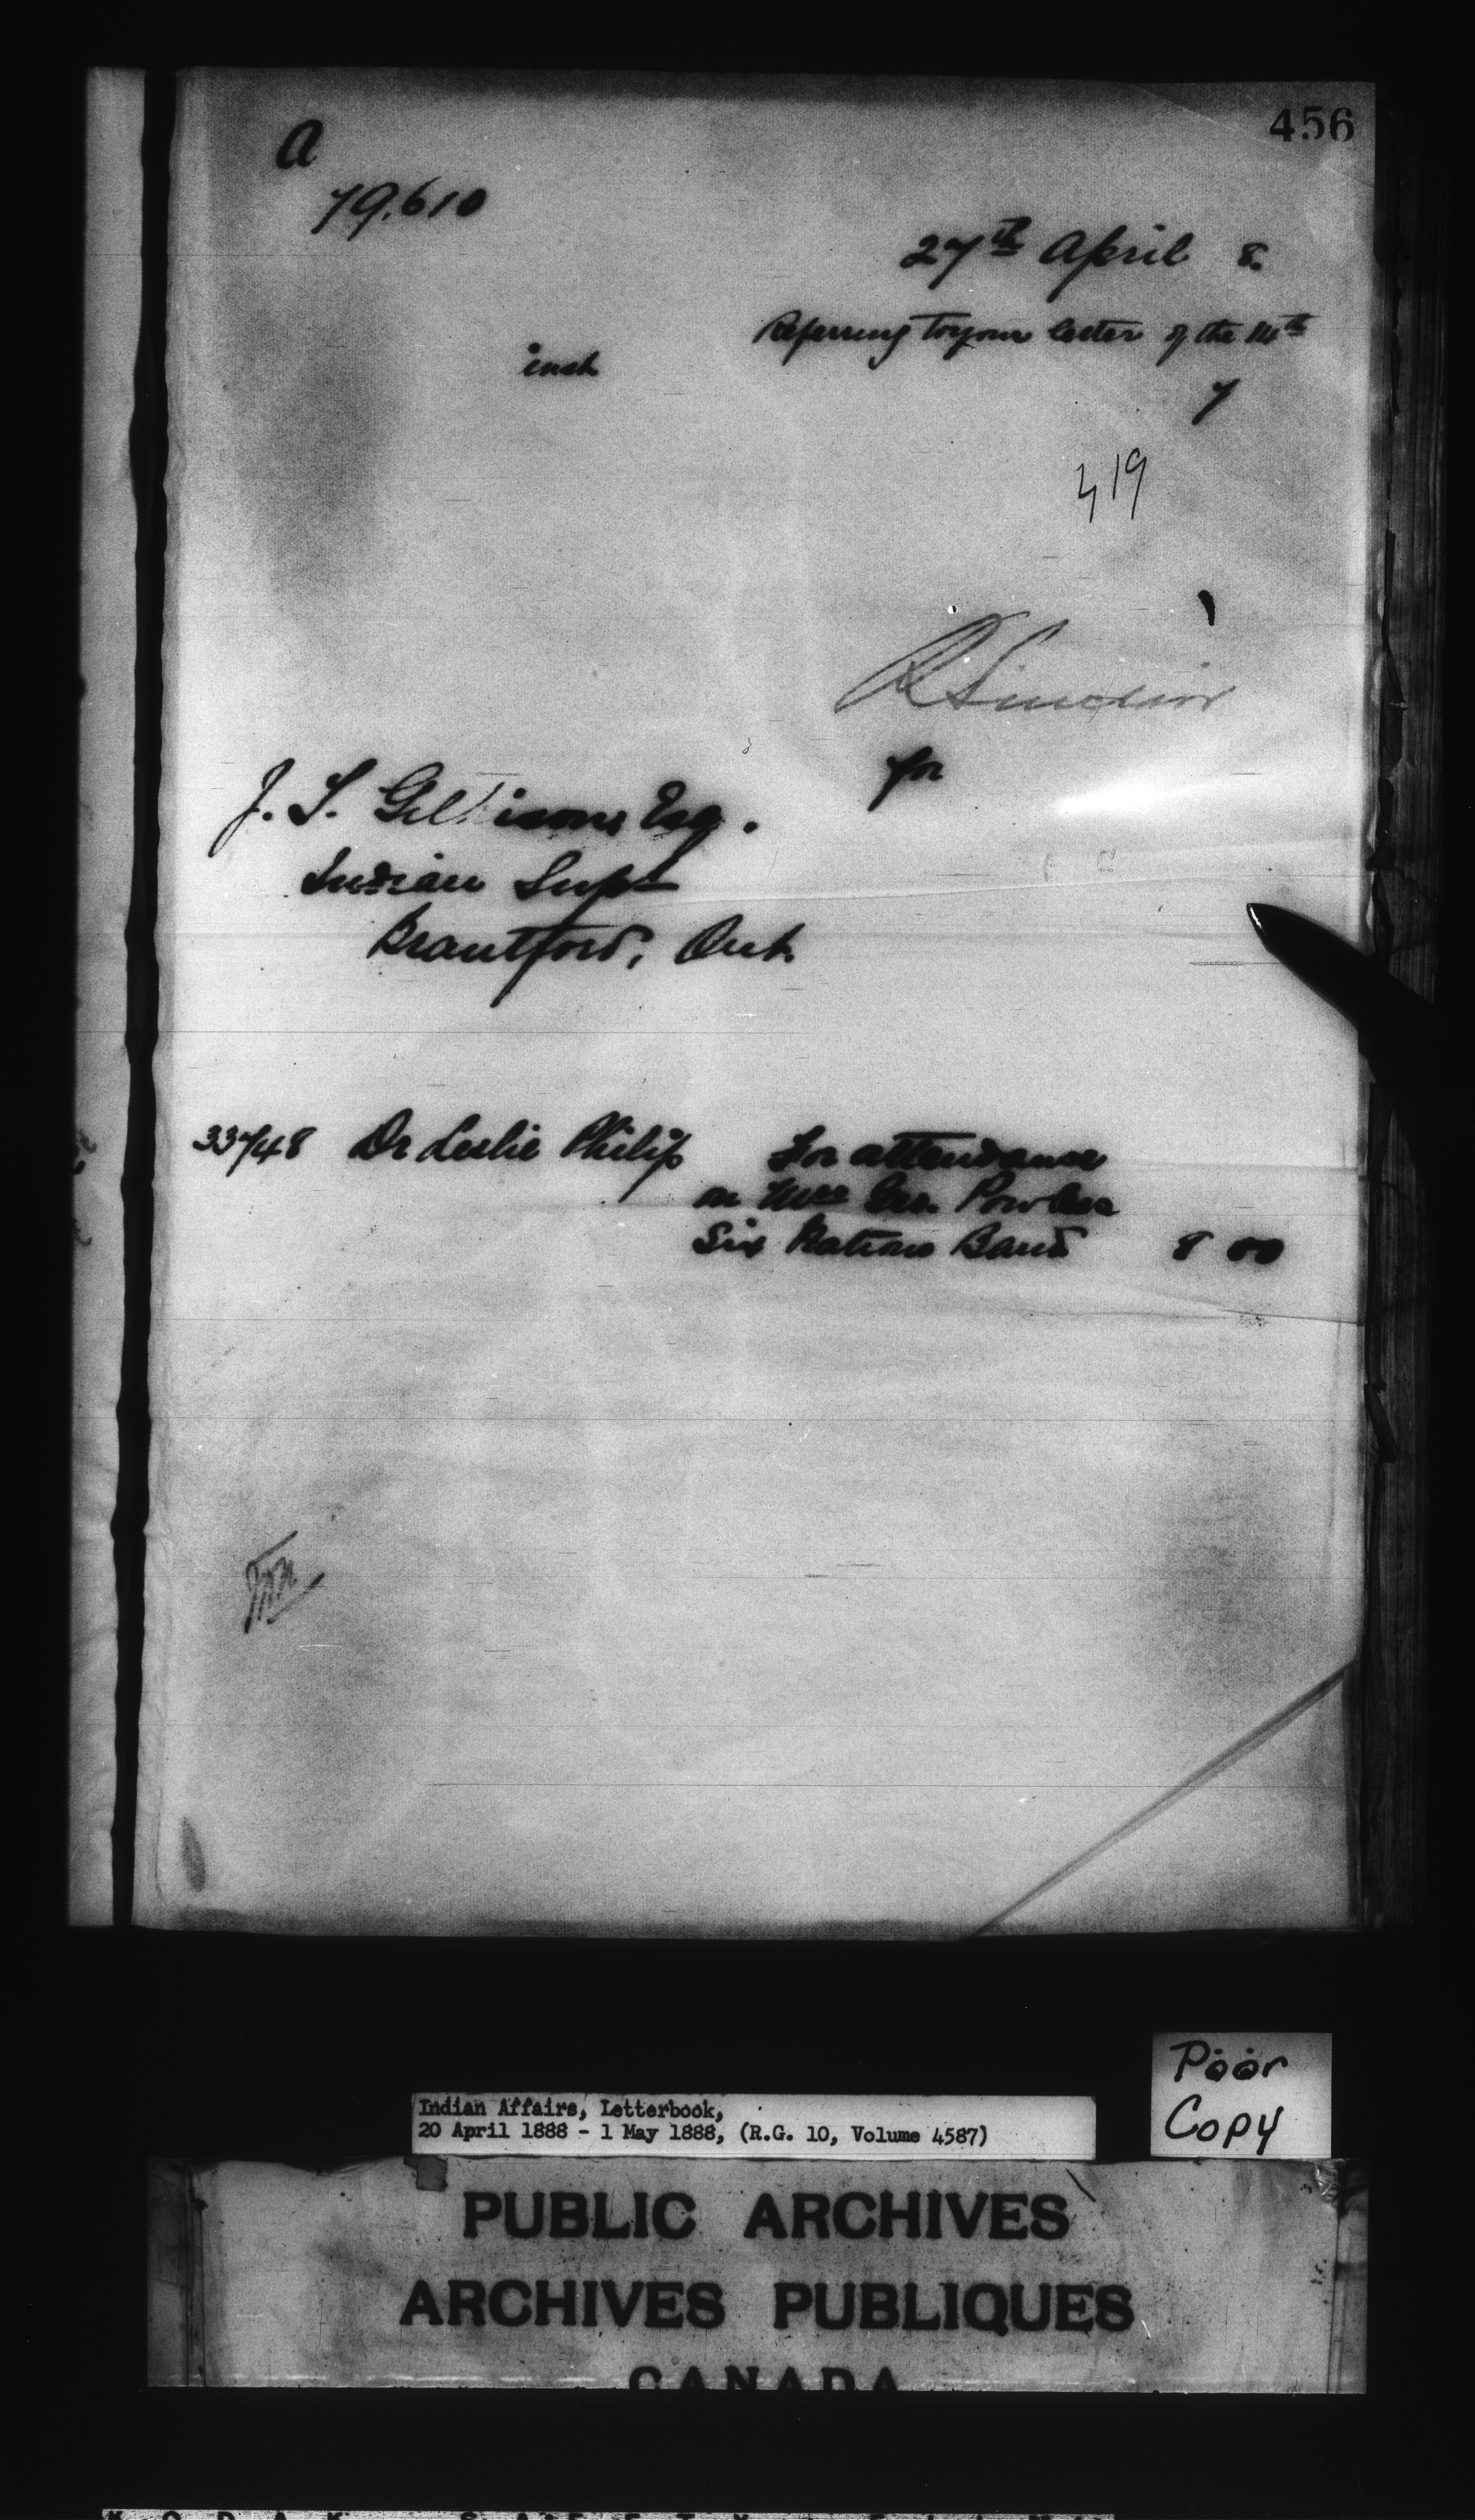 456
A
79.610
27th April 8.
Referring to your letter of the 14th
inst
7
419
R Sinclair
for
J. T. Gilkison, Esq.
Indian Supt
Brantford, Ont.
33748 Dr Leslie Philip For attendance
on Mrs Geo. Powless
Six Nations Band 8 00
Poor
Copy
Indian Affairs, Letterbook,
20 April 1888 - 1 May 1888, (R.G. 10, Volume 4587)
PUBLIC ARCHIVES
ARCHIVES PUBLIQUES
CANADA